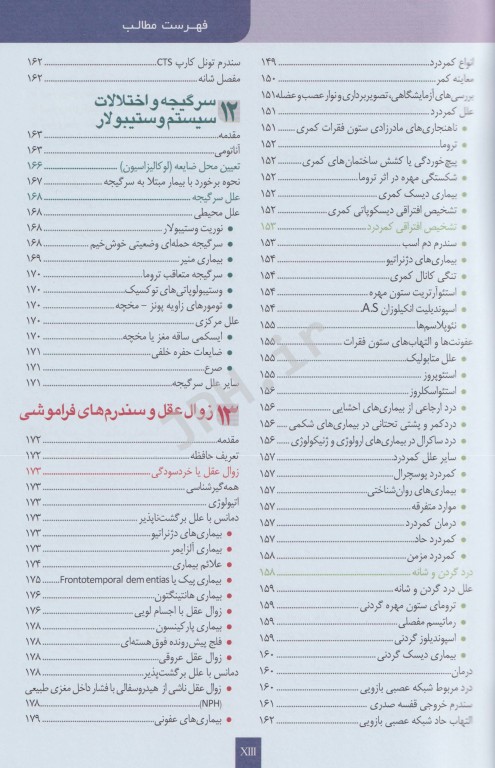 فهـرست مطالب
انواع کمردرد ۱۴۹
معاینه کمر ۱۵۰
بررسی‌های آزمایشگاهی، تصویربرداری و نوار عصب و عضله ۱۵۱
علل کمردرد ۱۵۱
• ناهنجاری‌های مادرزادی ستون فقرات کمری ۱۵۱
• تروما ۱۵۲
• پیچ‌خوردگی یا کشش ساختمان‌های کمری ۱۵۲
• شکستگی مهره در اثر تروما ۱۵۲
• بیماری دیسک کمری ۱۵۲
• تشخیص افتراقی دیسکوپاتی کمری ۱۵۲
• تشخیص افتراقی کمردرد ۱۵۳
• سندرم دم اسب ۱۵۳
• بیماری‌های دژنراتیو ۱۵۴
• تنگی کانال کمری ۱۵۴
• استئوآرتریت ستون مهره ۱۵۴
• اسپوندیلیت انکیلوزان A.S ۱۵۴
• نئوپلاسم‌ها ۱۵۵
عفونت‌ها و التهاب‌های ستون فقرات ۱۵۵
• علل متابولیک ۱۵۵
• استئوپروز ۱۵۵
• استئواسکلروز ۱۵۶
• درد ارجاعی از بیماری‌های احشایی ۱۵۶
• درد کمر و پشتی تحتانی در بیماری‌های شکمی ۱۵۶
• درد ساکرال در بیماری‌های ارولوژی و ژنیکولوژی ۱۵۶
• سایر علل کمردرد ۱۵۷
• کمردرد پوسچرال ۱۵۷
• بیماری‌های روان‌شناختی ۱۵۷
• موارد متفرقه ۱۵۷
• درمان کمردرد ۱۵۷
• کمردرد حاد ۱۵۷
• کمردرد مزمن ۱۵۸
درد گردن و شانه ۱۵۸
علل درد گردن و شانه ۱۵۹
• ترومای ستون مهره گردنی ۱۵۹
• رماتیسم مفصلی ۱۵۹
• اسپوندیلوز گردنی ۱۵۹
• بیماری دیسک گردنی ۱۶۰
درمان ۱۶۰
درد مربوط شبکه عصبی بازویی ۱۶۰
سندرم خروجی قفسه صدری ۱۶۱
التهاب حاد شبکه عصبی بازویی ۱۶۲
سندرم تونل کارپ CTS ۱۶۲
مفصل شانه ۱۶۲
۱۲ سرگیجه و اختلالات
سیستم وستیبولار
مقدمه ۱۶۳
آناتومی ۱۶۳
تعیین محل ضایعه (لوکالیزاسیون) ۱۶۶
نحوه برخورد با بیمار مبتلا به سرگیجه ۱۶۷
علل سرگیجه ۱۶۸
علل محیطی ۱۶۸
• نوریت وستیبولار ۱۶۸
• سرگیجه حمله‌ای وضعیتی خوش‌خیم ۱۶۸
• بیماری منیر ۱۶۹
• سرگیجه متعاقب تروما ۱۷۰
• وستیبولوپاتی‌های توکسیک ۱۷۰
• تومورهای زاویه پونز - مخچه ۱۷۰
علل مرکزی ۱۷۰
• ایسکمی ساقه مغز یا مخچه ۱۷۰
• ضایعات حفره خلفی ۱۷۱
• صرع ۱۷۱
سایر علل سرگیجه ۱۷۱
۱۳ زوال عقل و سندرم‌های فراموشی
مقدمه ۱۷۲
تعریف حافظه ۱۷۲
زوال عقل یا خردسودگی ۱۷۳
همه‌گیرشناسی ۱۷۳
اتیولوژی ۱۷۳
دمانس با علل برگشت‌ناپذیر ۱۷۳
• بیماری‌های دژنراتیو ۱۷۳
• بیماری آلزایمر ۱۷۳
• علائم بیماری ۱۷۴
• بیماری پیک یا Frontotemporal dementias ۱۷۵
• بیماری هانتینگتون ۱۷۶
• زوال عقل با اجسام لویی ۱۷۶
• بیماری پارکینسون ۱۷۸
• فلج پیش‌رونده فوق هسته‌ای ۱۷۸
• زوال عقل عروقی ۱۷۸
دمانس با علل برگشت‌پذیر ۱۷۸
• زوال عقل ناشی از هیدروسفالی با فشار داخل مغزی طبیعی
(NPH) ۱۷۸
• بیماری‌های عفونی ۱۷۹
XIII
JPH.ir